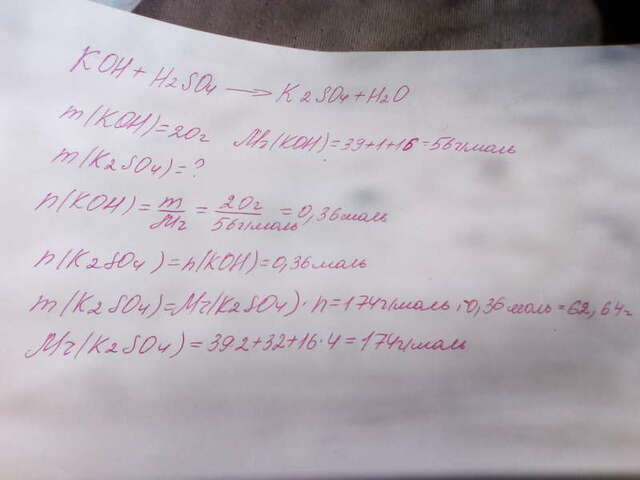 KOH + H2SO4 → K2SO4 + H2O
m(KOH)=20г Mr(KOH)=39+1+16=56г/моль
m(K2SO4)=?
n(KOH)=m/Mr=20г/56г/моль=0,36моль
n(K2SO4)=n(KOH)=0,36моль
m(K2SO4)=Mr(K2SO4)·n=174г/моль·0,36моль=62,64г
Mr(K2SO4)=39 2+32+16·4=174г/моль